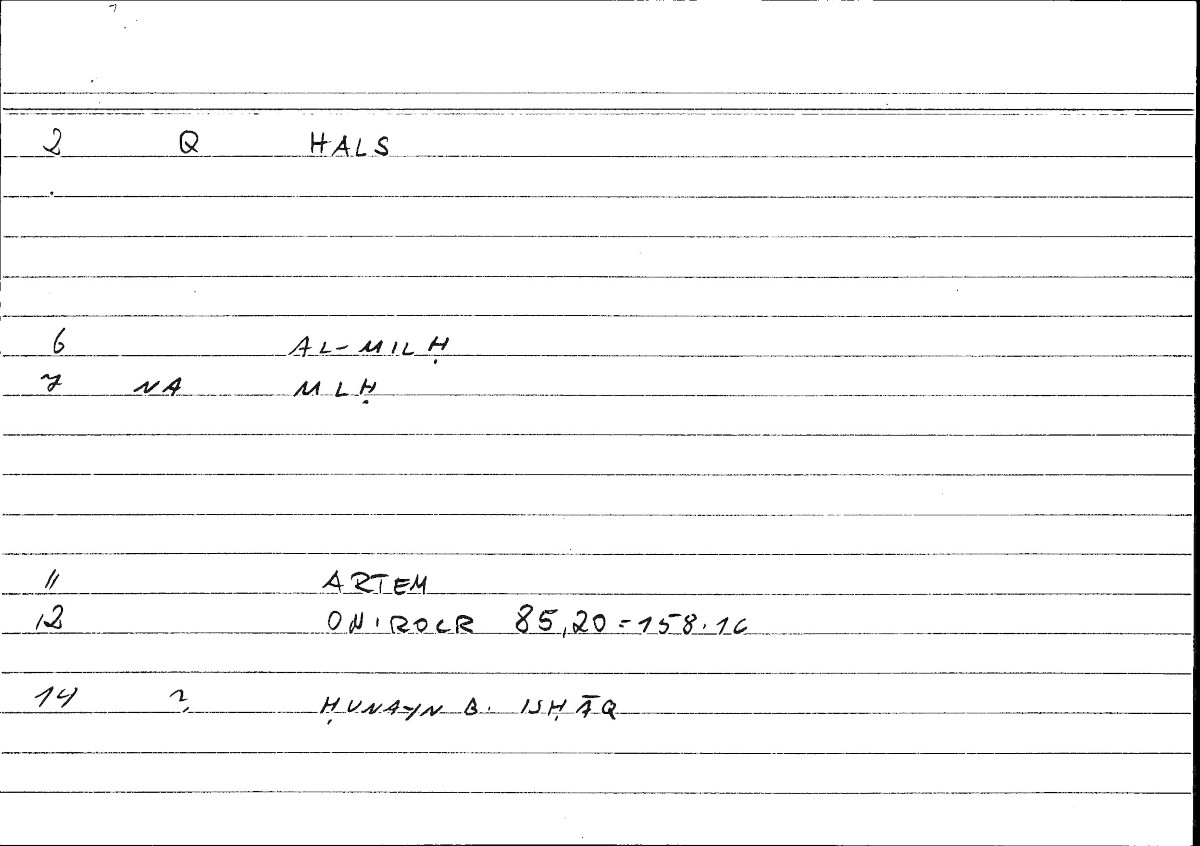 2 Q HALS
6 AL-MILḤ
7 NA MLḤ
11 ARTEM
12 ONIROCR 85,20=158.16
14 ? ḤUNAYN B. ISḤĀQ